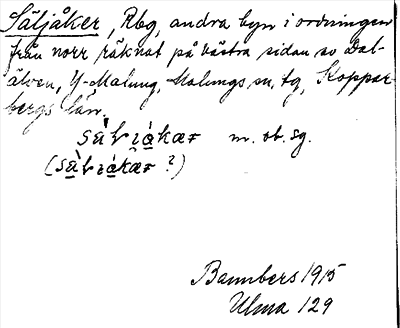 Säljåker, Rbg, andra byn i ordningen
från norr räknat på västra sidan av Dal-
älven, Y-Malung, Malungs sn, tg, Koppar-
bergs län.
m. ob. sg.
( ?)
Bannbers 1915
Ulma 129